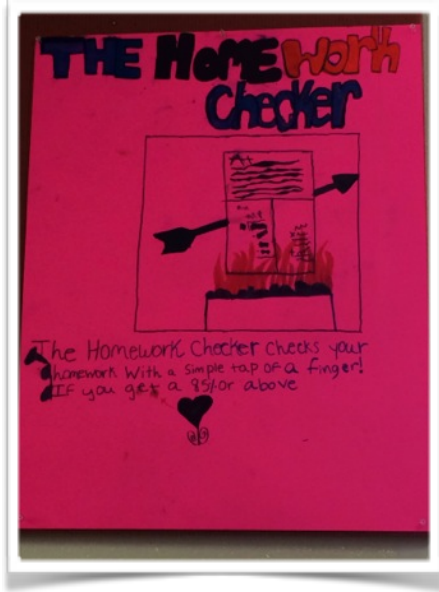 THE HOMEWork
Checker
A+
The Homework Checker checks your
homework With a Simple tap OF a finger!
IF you get a 85% or above